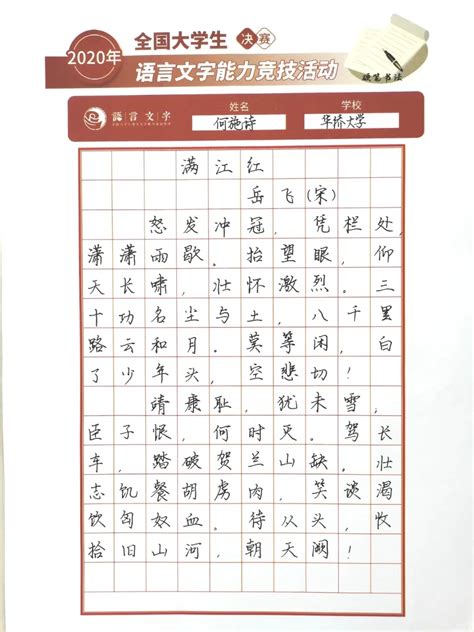 2020年
全国大学生 决赛
语言文字能力竞技活动
硬笔书法
語言文字
姓名
何施诗
学校
华侨大学
满江红
岳飞(宋)
怒发冲冠,凭栏处,
潇潇雨歇。抬望眼,仰
天长啸,壮怀激烈。三
十功名尘与土,八千里
路云和月。莫等闲,白
了少年头,空悲切!
靖康耻,犹未雪,
臣子恨,何时灭。驾长
车,踏破贺兰山缺。壮
志饥餐胡虏肉,笑谈渴
饮匈奴血。待从头,收
拾旧山河,朝天阙!